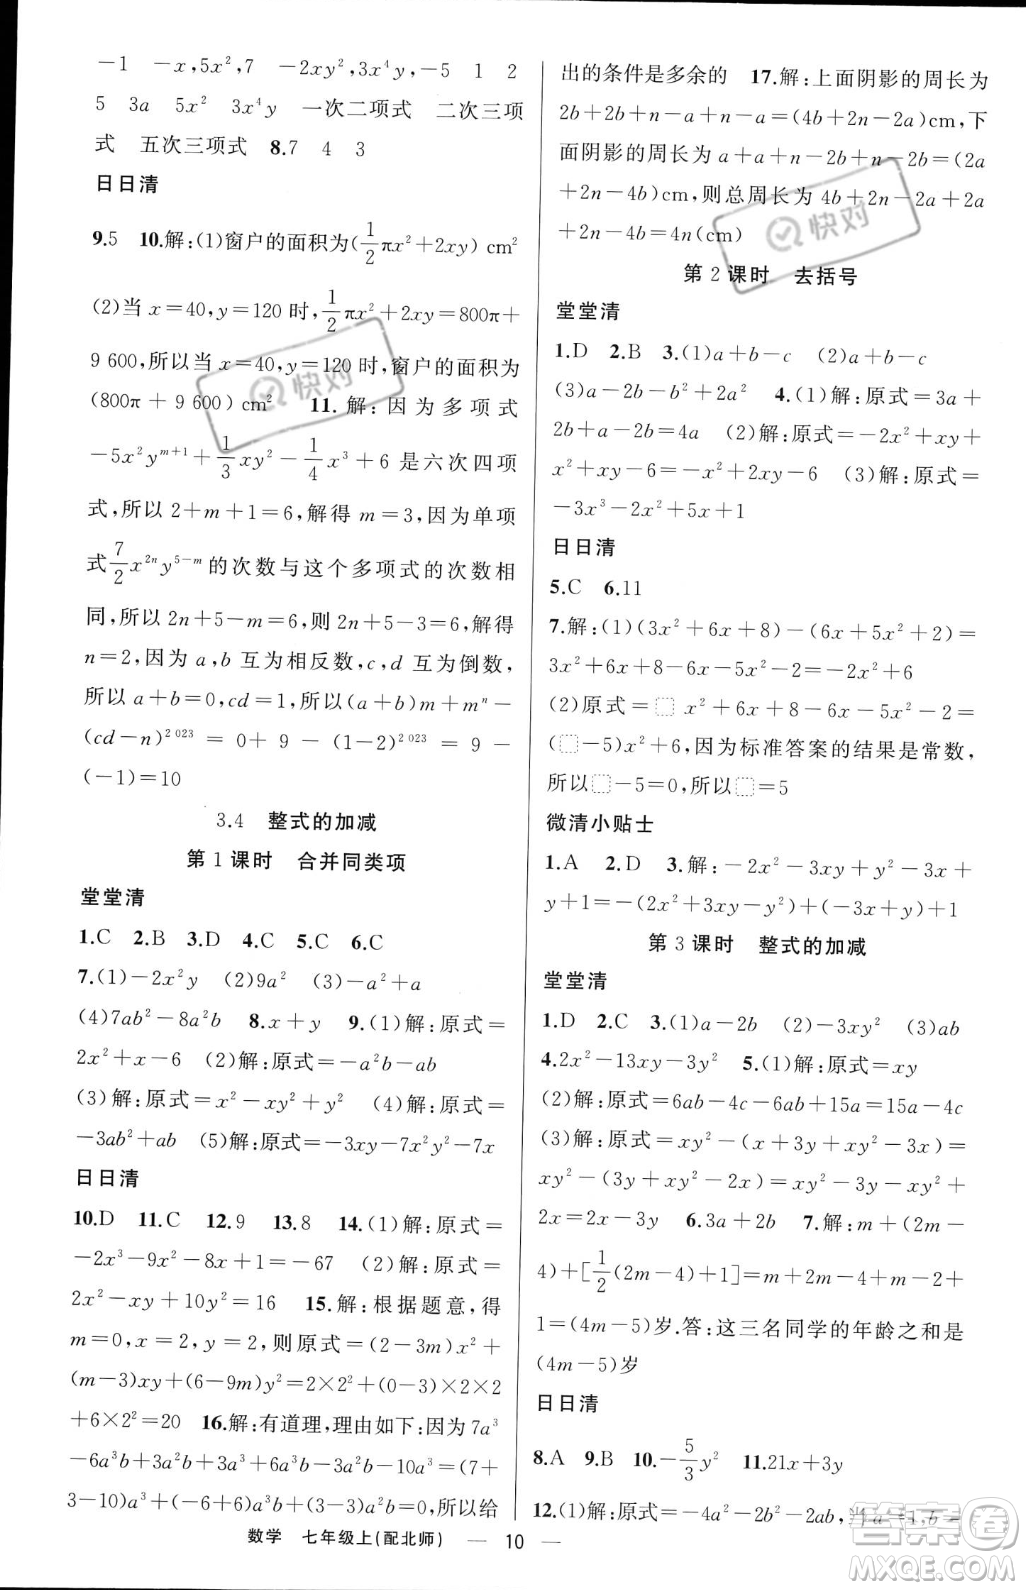 －1　－x,5x²,7　－2xy²,3x⁴y,－5　1　2
5　3a　5x²　3x⁴y　一次二项式　二次三项
式　五次三项式　8.7　4　3
日日清
9.5　10.解:(1)窗户的面积为(1/2πx²＋2xy) cm²
(2)当 x＝40,y＝120 时,1/2πx²＋2xy＝800π＋
9 600,所以当 x＝40,y＝120 时,窗户的面积为
(800π＋9 600)cm²　11.解:因为多项式
－5x²yᵐ⁺¹＋1/3xy²－1/4x³＋6 是六次四项
式,所以 2＋m＋1＝6,解得 m＝3,因为单项
式7/2x²ⁿy⁵⁻ᵐ的次数与这个多项式的次数相
同,所以 2n＋5－m＝6,则 2n＋5－3＝6,解得
n＝2,因为 a,b 互为相反数,c,d 互为倒数,
所以 a＋b＝0,cd＝1,所以(a＋b)m＋mⁿ－
(cd－n)²⁰²³＝0＋9－(1－2)²⁰²³＝9－
(－1)＝10
3.4　整式的加减
第1课时　合并同类项
堂堂清
1.C　2.B　3.D　4.C　5.C　6.C
7.(1)－2x²y　(2)9a²　(3)－a²＋a
(4)7ab²－8a²b　8.x＋y　9.(1)解:原式＝
2x²＋x－6　(2)解:原式＝－a²b－ab
(3)解:原式＝x²－xy²＋y　(4)解:原式＝
－3ab²＋ab　(5)解:原式＝－3xy－7x²y²－7x
日日清
10.D　11.C　12.9　13.8　14.(1)解:原式＝
－2x³－9x²－8x＋1＝－67　(2)解:原式＝
2x²－xy＋10y²＝16　15.解:根据题意,得
m＝0,x＝2,y＝2,则原式＝(2－3m)x²＋
(m－3)xy＋6y＝(2－0)×2²＋(0－3)×2×2
＋6×2²＝20　16.解:有道理,理由如下:因为7a³
－6a³b＋3a²b＋3a³＋6a³b－3a²b－10a³＝(7＋
3－10)a³＋(－6＋6)a³b＋(3－3)a²b＝0,所以给
出的条件是多余的　17.解:上面阴影的周长为
2b＋2b＋n－a＋n－a＝(4b＋2n－2a)cm,下
面阴影的周长为 a＋a＋n－2b＋n－2b＝(2a
＋2n－4b)cm,则总周长为 4b＋2n－2a＋2a
＋2n－4b＝4n(cm)
第2课时　去括号
堂堂清
1.D　2.B　3.(1)a＋b－c　(2)a－b－c
(3)a－2b－b²＋2a²　4.(1)解:原式＝3a＋
2b＋a－2b＝4a　(2)解:原式＝－2x²＋xy＋
x²＋xy－6＝－x²＋2xy－6　(3)解:原式＝
－3x³－2x²＋5x＋1
日日清
5.C　6.11
7.解:(1)(3x²＋6x＋8)－(6x＋5x²＋2)＝
3x²＋6x＋8－6x－5x²－2＝－2x²＋6
(2)原式＝□x²＋6x＋8－6x－5x²－2＝
(□－5)x²＋6,因为标准答案的结果是常数,
所以□－5＝0,所以□＝5
微清小贴士
1.A　2.D　3.解:－2x²－3xy＋y²－3x＋
y＋1＝－(2x²＋3xy－y²)＋(－3x＋y)＋1
第3课时　整式的加减
堂堂清
1.D　2.C　3.(1)a－2b　(2)－3xy²　(3)ab
4.2x²－13xy－3y²　5.(1)解:原式＝xy
(2)解:原式＝6ab－4c－6ab＋15a＝15a－4c
(3)解:原式＝xy²－(x＋3y＋xy²－3x)＝
xy²－x－3y－xy²＋3x＝xy²－3y－xy²＋
2x＝2x－3y　6.3a＋2b　7.解:m＋(2m－
4)＋[1/2(2m－4)＋1]＝m＋2m－4＋m－2＋
1＝(4m－5)岁.答:这三名同学的年龄之和是
(4m－5)岁
日日清
8.A　9.B　10.－5/3y²　11.21x＋3y
12.(1)解:原式＝－4a²－2b²－2ab,当 a＝1,b＝
数学　七年级上(配北师)　— 10 —
快对
快对
答案圈
MXQE.COM